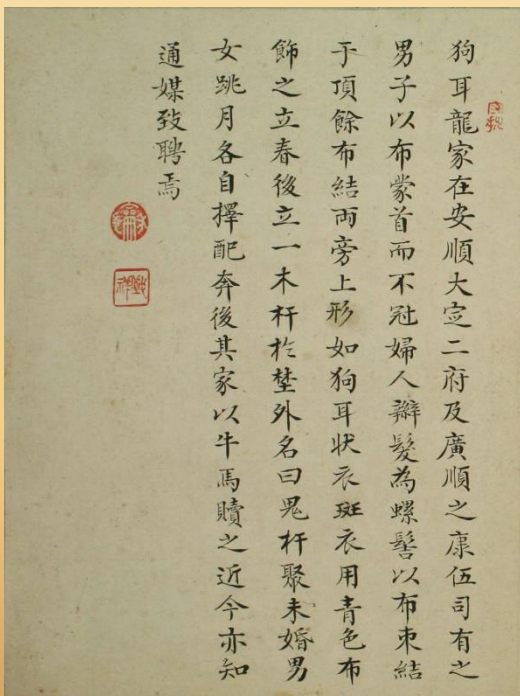 狗耳龍家在安順大定二府及廣順之康伍司有之
男子以布蒙首而不冠婦人辮髮為螺髻以布束結
于頂餘布結両旁上形如狗耳狀衣斑衣用青色布
飾之立春後立一木杆於埜外名曰鬼杆聚未婚男
女跳月各自擇配奔後其家以牛馬贖之近今亦知
通媒致聘焉